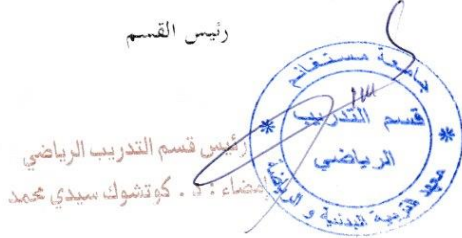 رئيس القسم
جامعة مستغانم
قسم التدريب
الرياضي
معهد التربية البدنية و الرياضية
رئيس قسم التدريب الرياضي
إمضاء : د . كوتشوك سيدي محمد